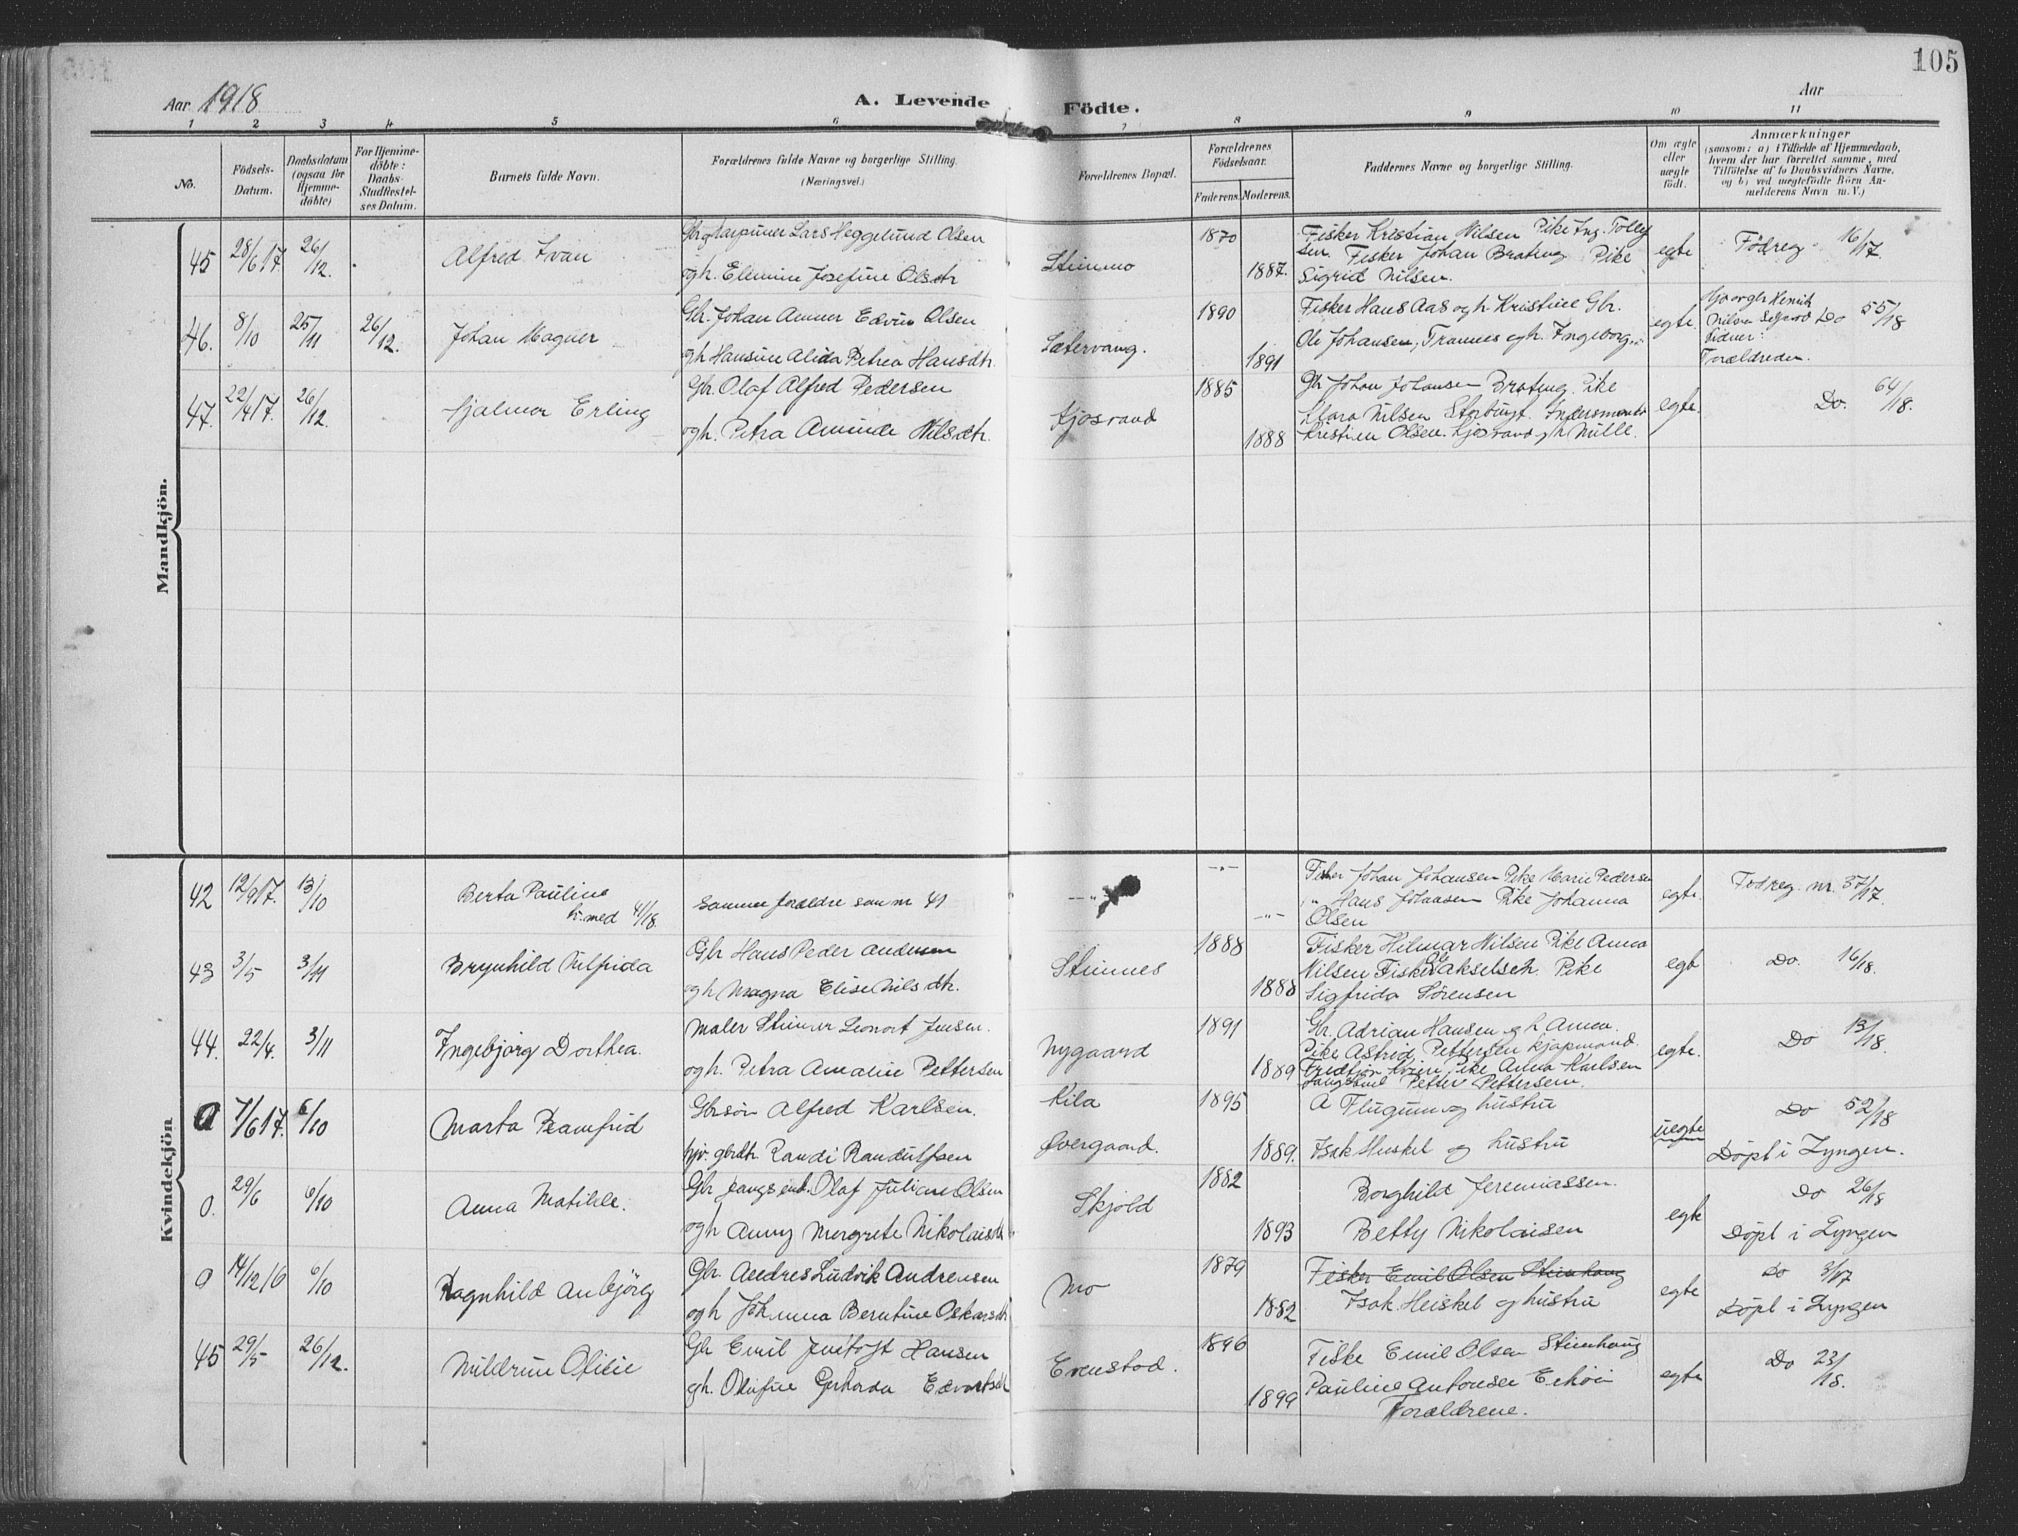 105
Aar 1918
A. Levende Födte.
Aar
1 2 3 4 5 6 7 8 9 10 11
No.
Födsels-Datum.
Daabsdatum (ogsaa for Hjemme-döbte)
For Hjemme-döbte: Daabs-Stadfæstel-ses Datum.
Barnets fulde Navn.
Forældrenes fulde Navne og borgerlige Stilling.
(Næringsvei.)
Forældrenes Bopæl.
Forældrenes Födselsaar.
Faderens. Moderens.
Faddernes Navne og borgerlige Stilling.
Om ægte eller uægte födt.
Anmærkninger
(saasom: a) i Tilfælde af Hjemmedaab,
hvem der har forrettet samme, med
Tilföielse af to Daabsvidners Navne,
og b) ved uægtefödte Börn An-
melderens Navn m. V.)
Mandkjön.
45 28/6 17. 26/12. Alfred Ivan
Gbr og Harpuner Lars Heggelund Olsen
og h. Elemine Josefine Olsdtr
Steinmo 1870 1887.
Fisker Kristian Nilsen Pike Ing. Tolley
sen. Fisker Johan Brateng Pike
Sigrid Nilsen.
egte Födreg 16/17.
46. 8/10 25/11 26/12. Johan Magner
Gbr. Johan Anner Edvin Olsen
og h Hansine Alida Petrea Hansdtr.
Sætervang. 1890 1891
Fisker Hans Aas og h Kristine Gbr.
Ole Johansen, Tramnes og h. Ingeborg
egte. Do 55/18
Forældrene.
47. 22/4 17. 26/12. Hjalmar Erling
Gbr. Olaf Alfred Pedersen
og h. Petra Aminde Nilsdtr.
Kjosvand 1885 1888
Gbr Johan Johansen Brateng. Pike
Klara Nilsen Storbugt.
Kristian Olsen. Kjosvand og h Mille.
egte. Do. 64/18.
Kvindekjön
42 12/9 17. 13/10 Berta Pauline
tv. med 41/18.
Samme forældre som nr 41
-"- -"- -"-
Fisker Johan Johansen Pike Marie Pedersen
" Hans Johansen Pike Johanna
Olsen
egte. Fodreg. nr. 37/17.
43 3/5 3/11 Brynhild Alfrida
Gbr Hans Peder Andersen
og h Magna Elise Nilsdtr.
Steinnes 1888 1888
Fisker Hilmar Nilsen Pike Anna
Nilsen Fisker Ole Akselsen. Pike
Sigfrida Sørensen
egte Do. 16/18.
44. 22/4. 3/11 Ingebjørg Dorthea.
Maler Steiner Leonart Jensen.
og h. Petra Amalie Pettersen
Nygaard 1891 1889
Gbr. Adrian Hansen og h Anna.
Pike Astrid Pettersen Kjøpmand.
Fredtjon Kræmer Pike Anna Karlsen
Petter Pettersen.
egte. Do 13/18.
0 7/6 17. 6/10 Marta Ramfrid
Gbrsøn Alfred Karlsen.
hjv. gbrdtr Randi Randulfsen
Kila
Øvergaard. 1895 1889.
A Flugum og hustru
Isak Heiskel og hustru
uegte Do 52/18
Døpt i Lyngen.
0. 29/6 6/10 Anna Matilde.
Gbr Olaf Juliane Olsen
og h Anny Margrete Nikolaisdtr
Skjold 1882 1893
Borghild Jeremiassen.
Betty Nikolaisen
egte Do 26/18
Døpt i Lyngen
0 14/12 16 6/10 Ragnhild Anbjörg
Gbr. Andres Ludvik Andreasen
og h Johanna Berntine Oskarsdtr
Mo 1879 1882
Fisker Emil Olsen Steinhaug
Isak Heiskel og hustru
egte Do 3/17
Døpt i Lyngen
45 29/5 26/12. Mildrun Otilie
Gbr Emil Hansen
og h. Olufine Gerharda Edvartsdtr
Evenstad. 1896 1899
Fisker Emil Olsen Steinhaug
Pauline Antonsen
Forældrene.
egte Do 23/18.